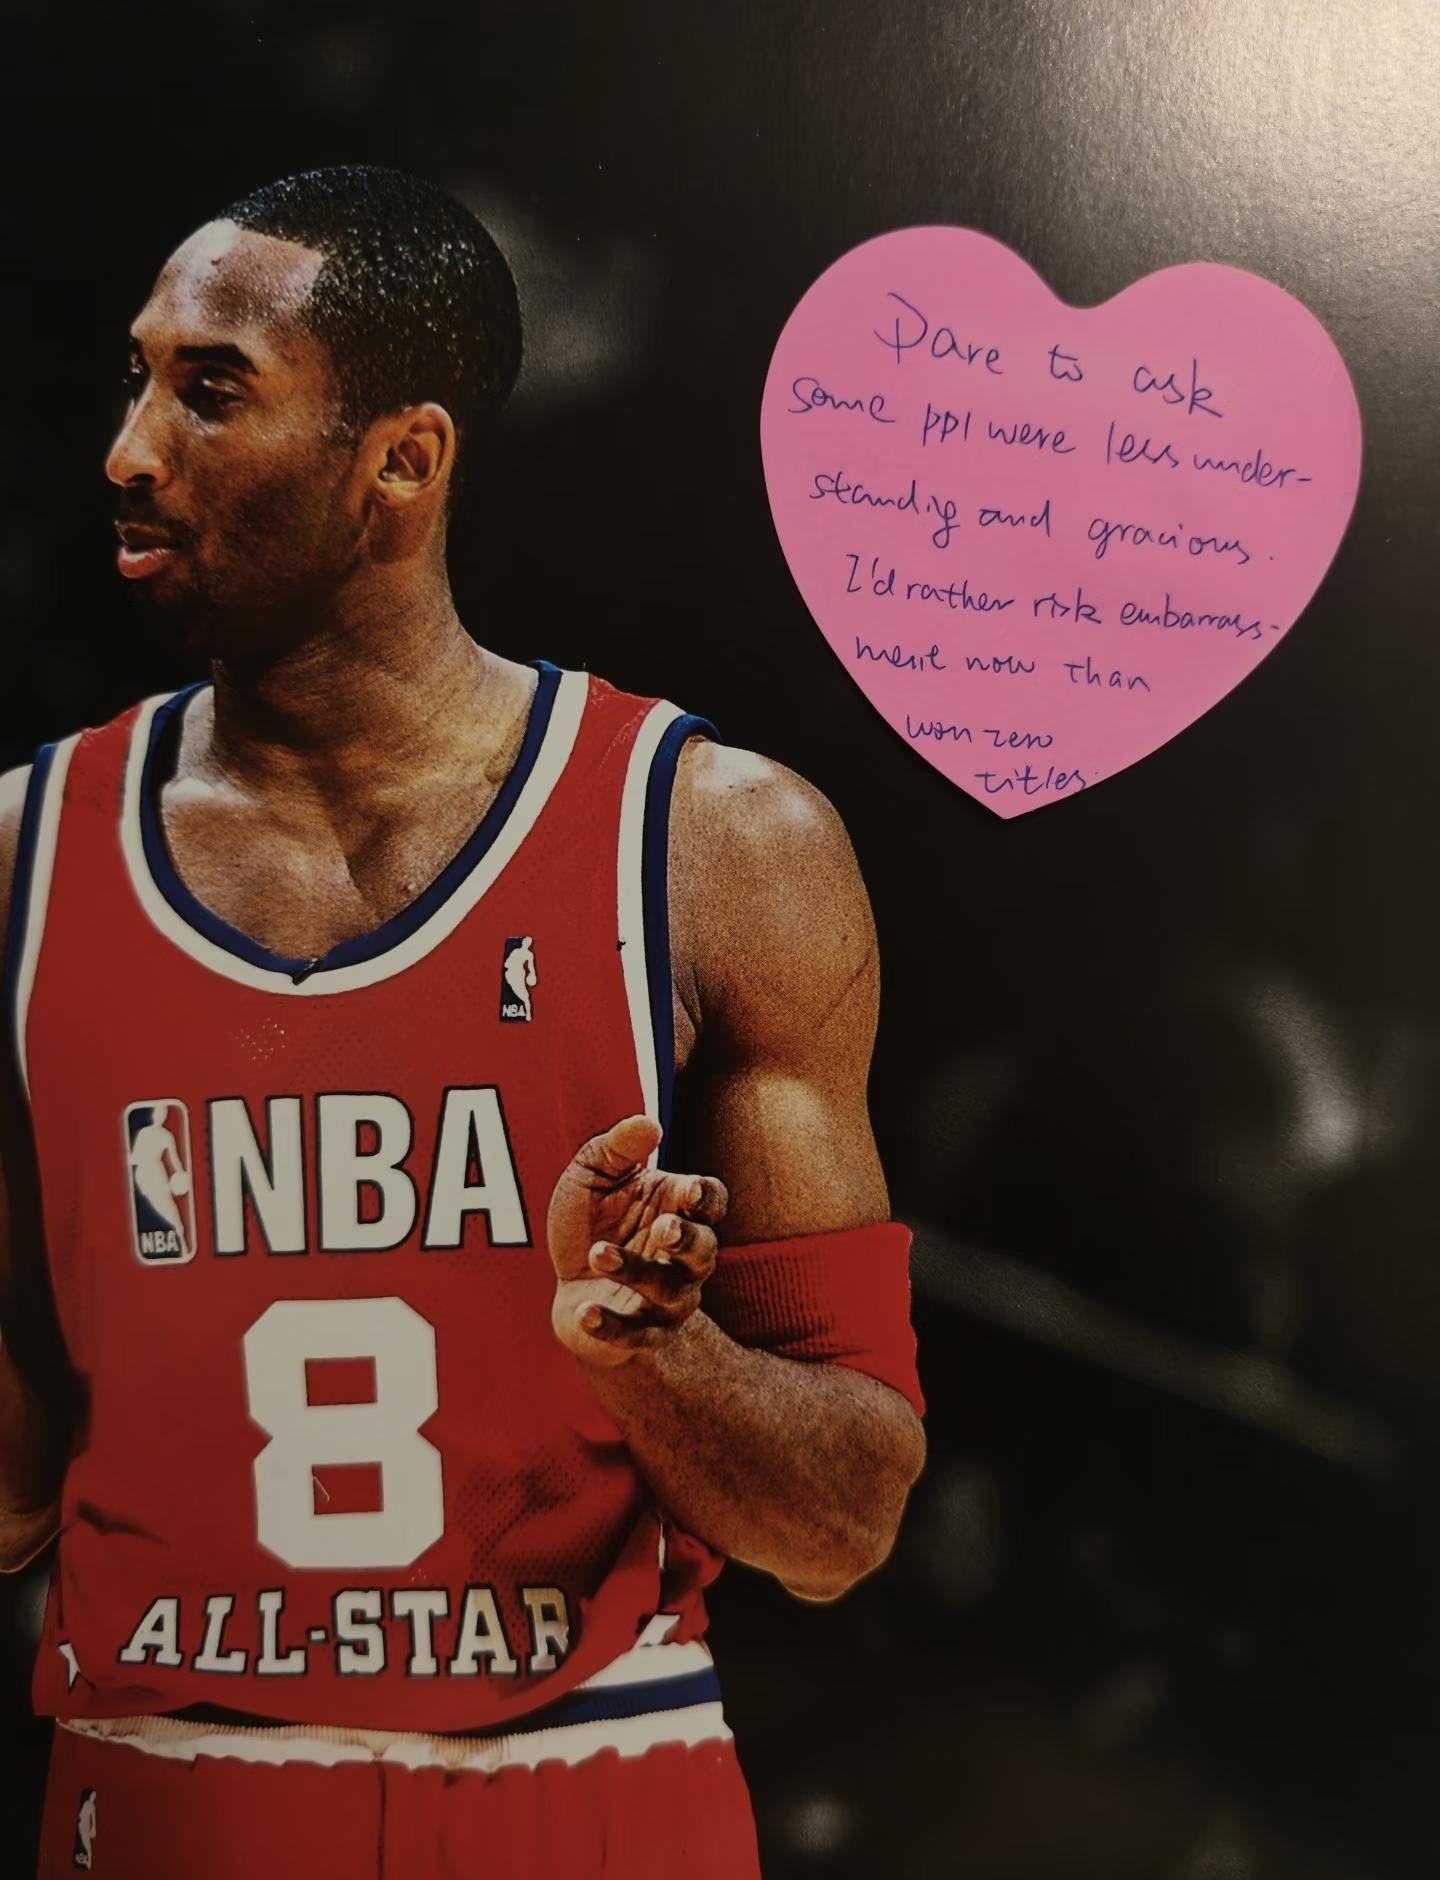 Dare to ask
some ppl were less under-
standig and gracious.
I'd rather risk embarrass-
ment now than
won zero
titles.
NBA
NBA
NBA
8
ALL-STAR